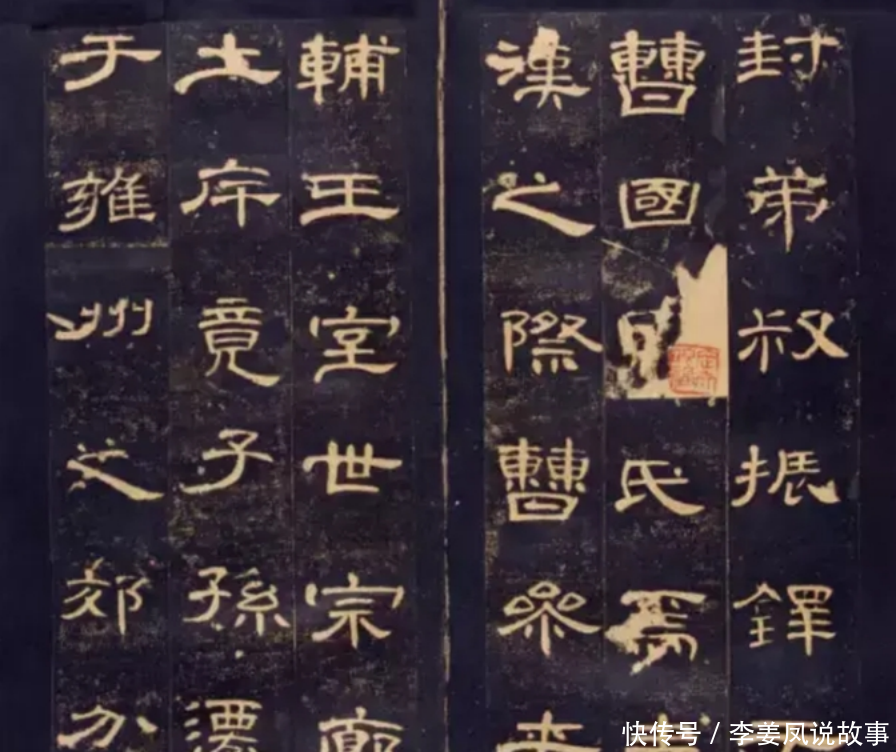 封弟叔振鐸
曹國氏焉
漢之際曹參
輔王室世宗廓
土斥竟子孫遷
于雍州之郊分
快传号 / 李姜凤说故事